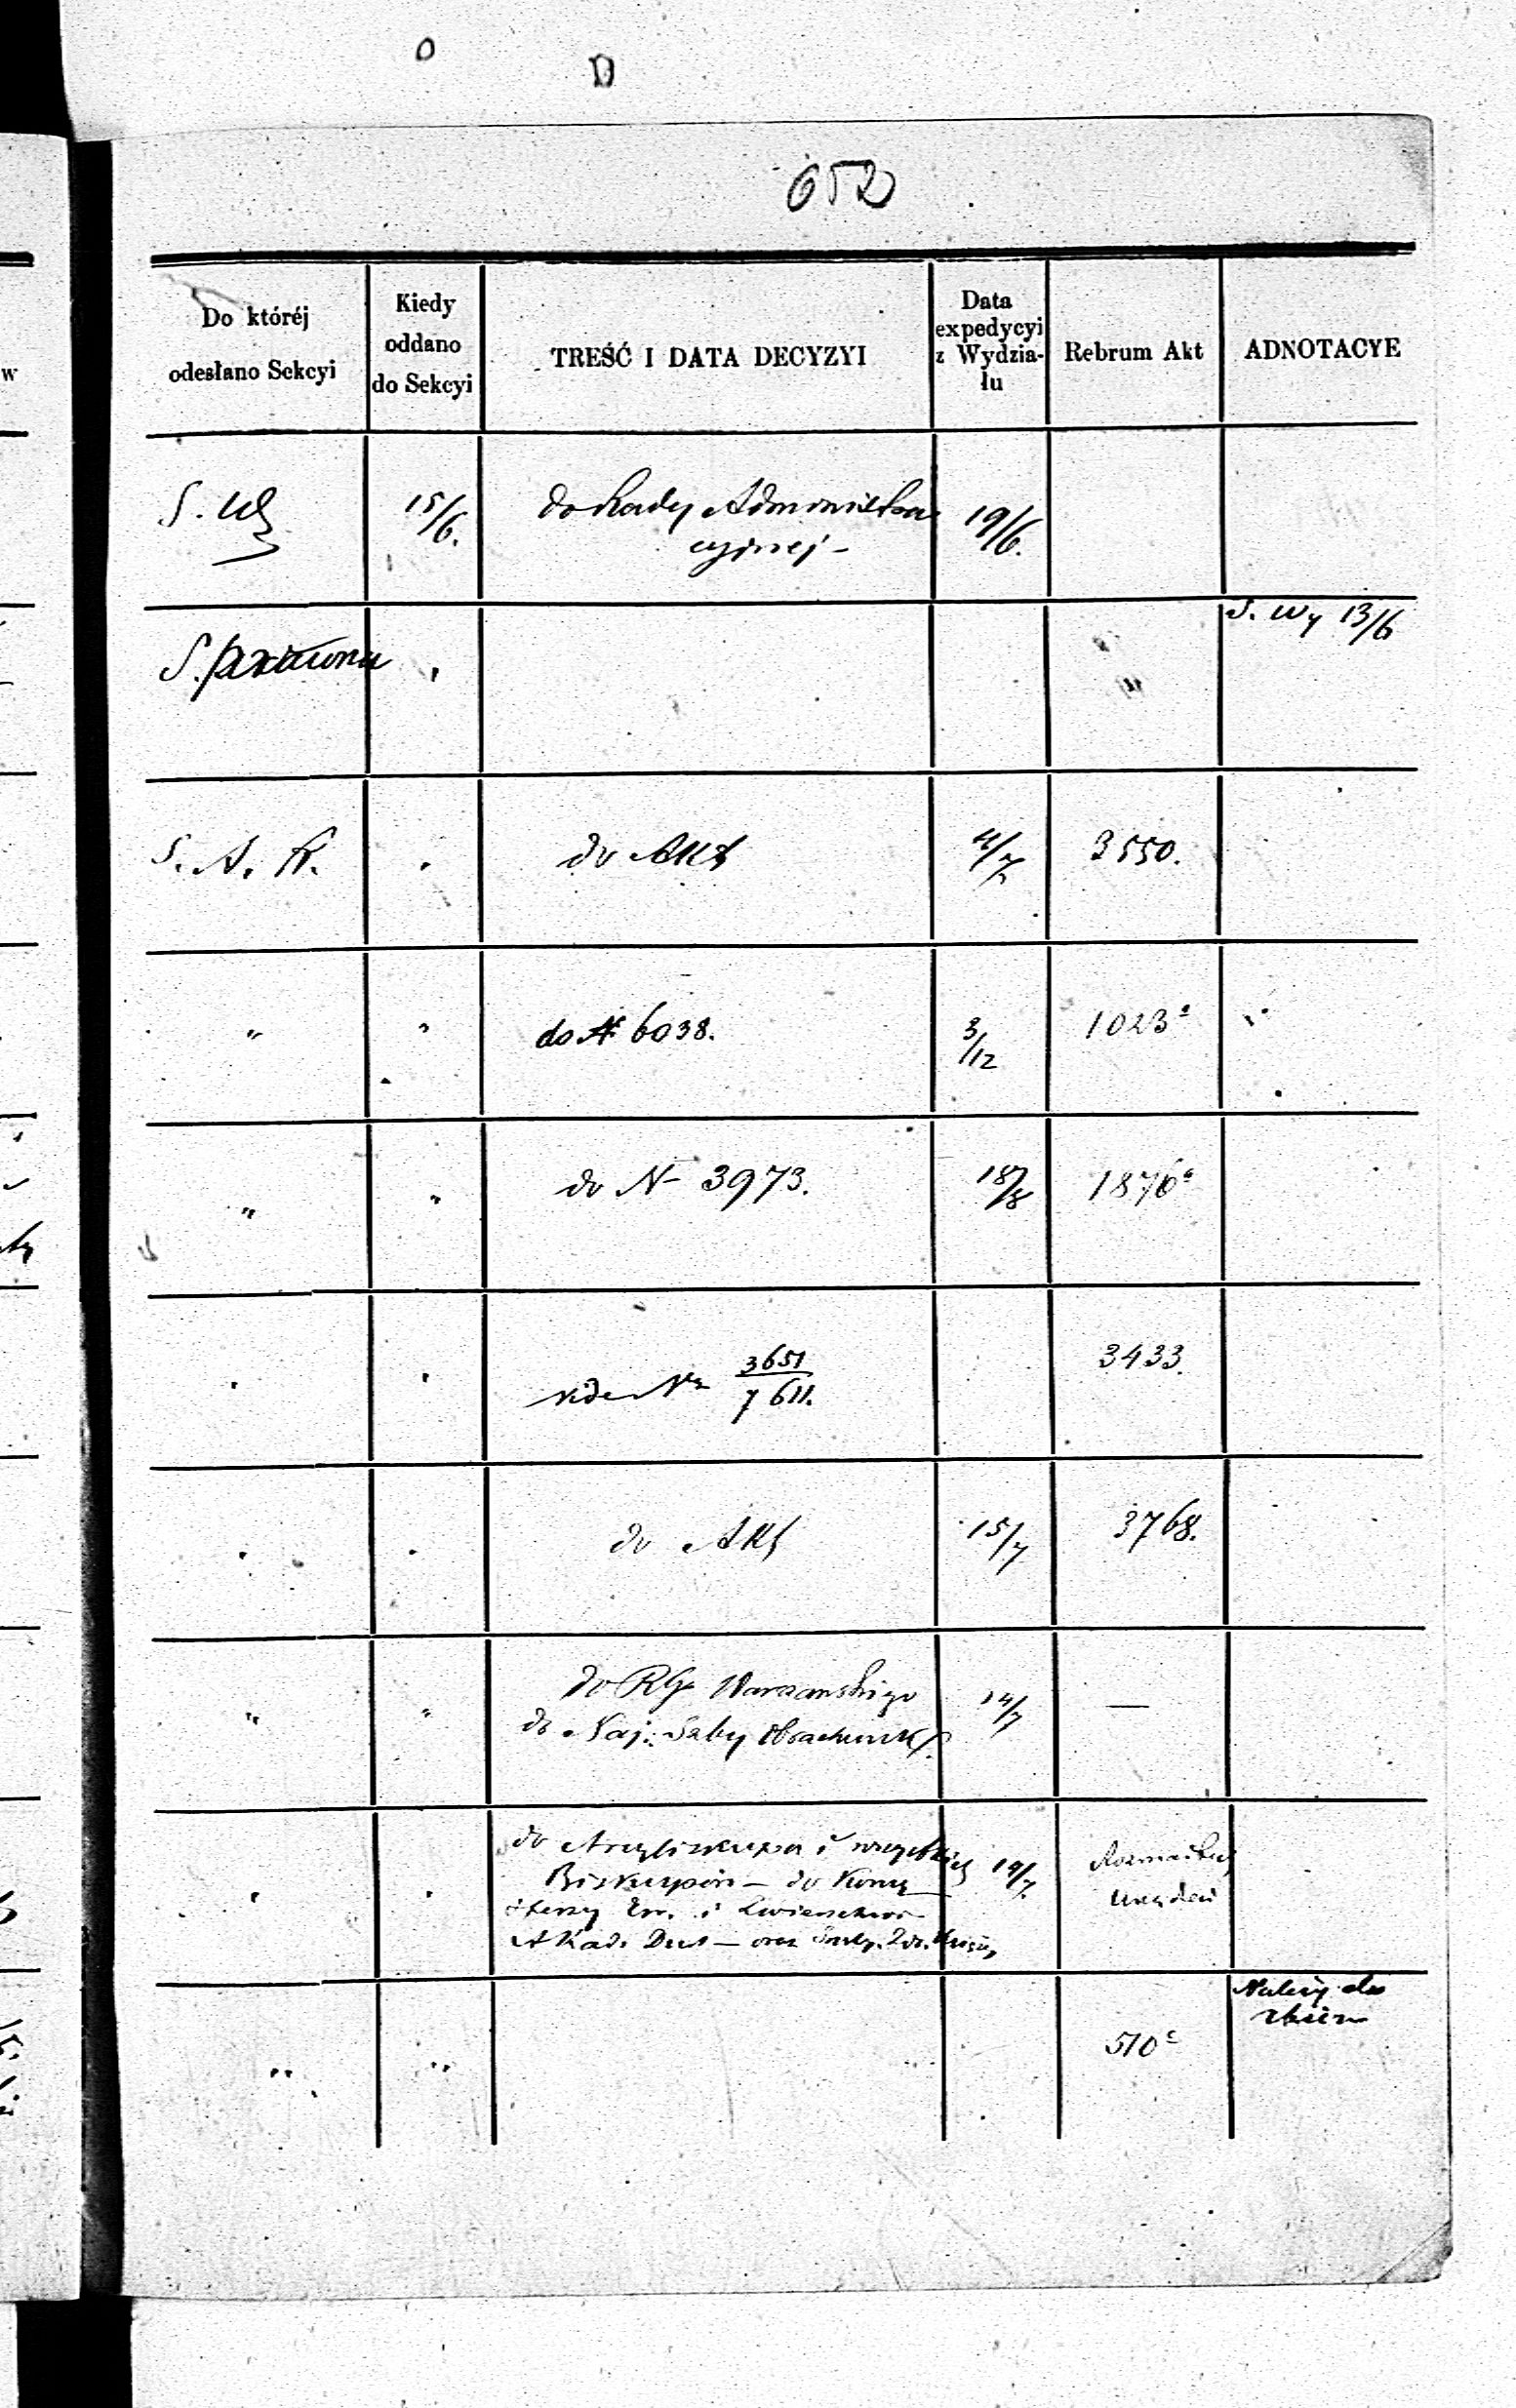 652
Do któréj
odesłano Sekcyi
Kiedy
oddano
do Sekcyi
TREŚĆ I DATA DECYZYI
Data
expedycyi
z Wydzia-
łu
Rebrum Akt
ADNOTACYE
15/6.
do Rady Administra
cyjnej -
19/6.
S. Wy 13/6
S.
S. A. K.
do Akt
4/7
3550.
" "
do N 6038.
3/12
1023
" "
do N 3973.
18/8
1876
vide Nr 3651
7611.
3433.
do Akt
15/7
3768.
" "
do RG Warszawskiego
do Naj. Izby Obrachunk.
14/7
—
do Arcybiskupa i wszystkich
Biskupów — do Kons
Akad. Duch — oraz
14/7.
Rozmaitych
Urządzeń
" "
510
Należy do
zbioru